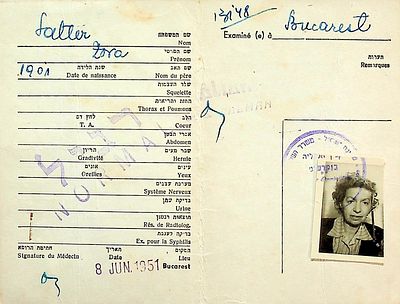 Satler
שם המשפחה
Nom
שם הפרטי
Prénom
1901
שנת הלידה
שם האב
Date de naissance
Nom du père
שלד העצמות
Squelette
החזה והריאות
Thorax et Poumons
לחץ דם
הלב
T. A.
Coeur
אברי הבטן
Abdomen
הריון
שבר מעים
Gradivité
Hernie
אזנים
עינים
Oreilles
Yeux
מערכת עצבים
Système Nerveux
בדיקת שתן
Urine
תוצאות רנטגן
Rés. de Radiolog.
בדיקה לעגבת
Ex. pour la Syphilis
NORMAL
חתימת הרופא
תאריך
המקום
Signature du Médecin
Date
Lieu
8 JUN. 1951
Bucarest
Examiné (e) à
Bucarest
הערות
Remarques